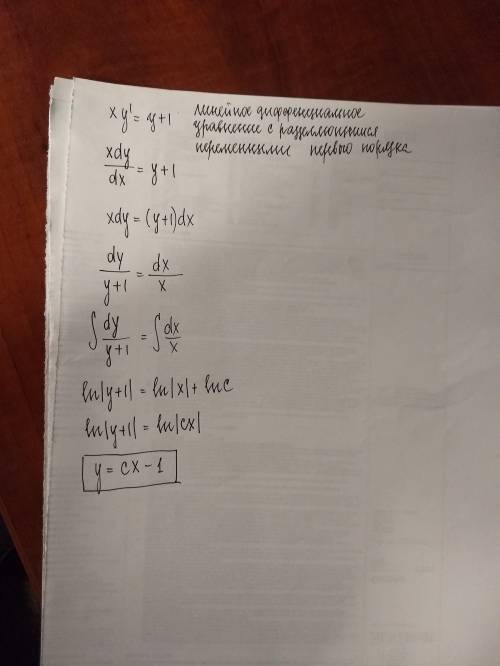 xy' = y+1 линейное дифференциальное
уравнение с разделяющимися
переменными первого порядка
xdy/dx = y+1
xdy = (y+1)dx
dy/y+1 = dx/x
∫ dy/y+1 = ∫ dx/x
ln|y+1| = ln|x| + lnc
ln|y+1| = ln|cx|
y = cx - 1